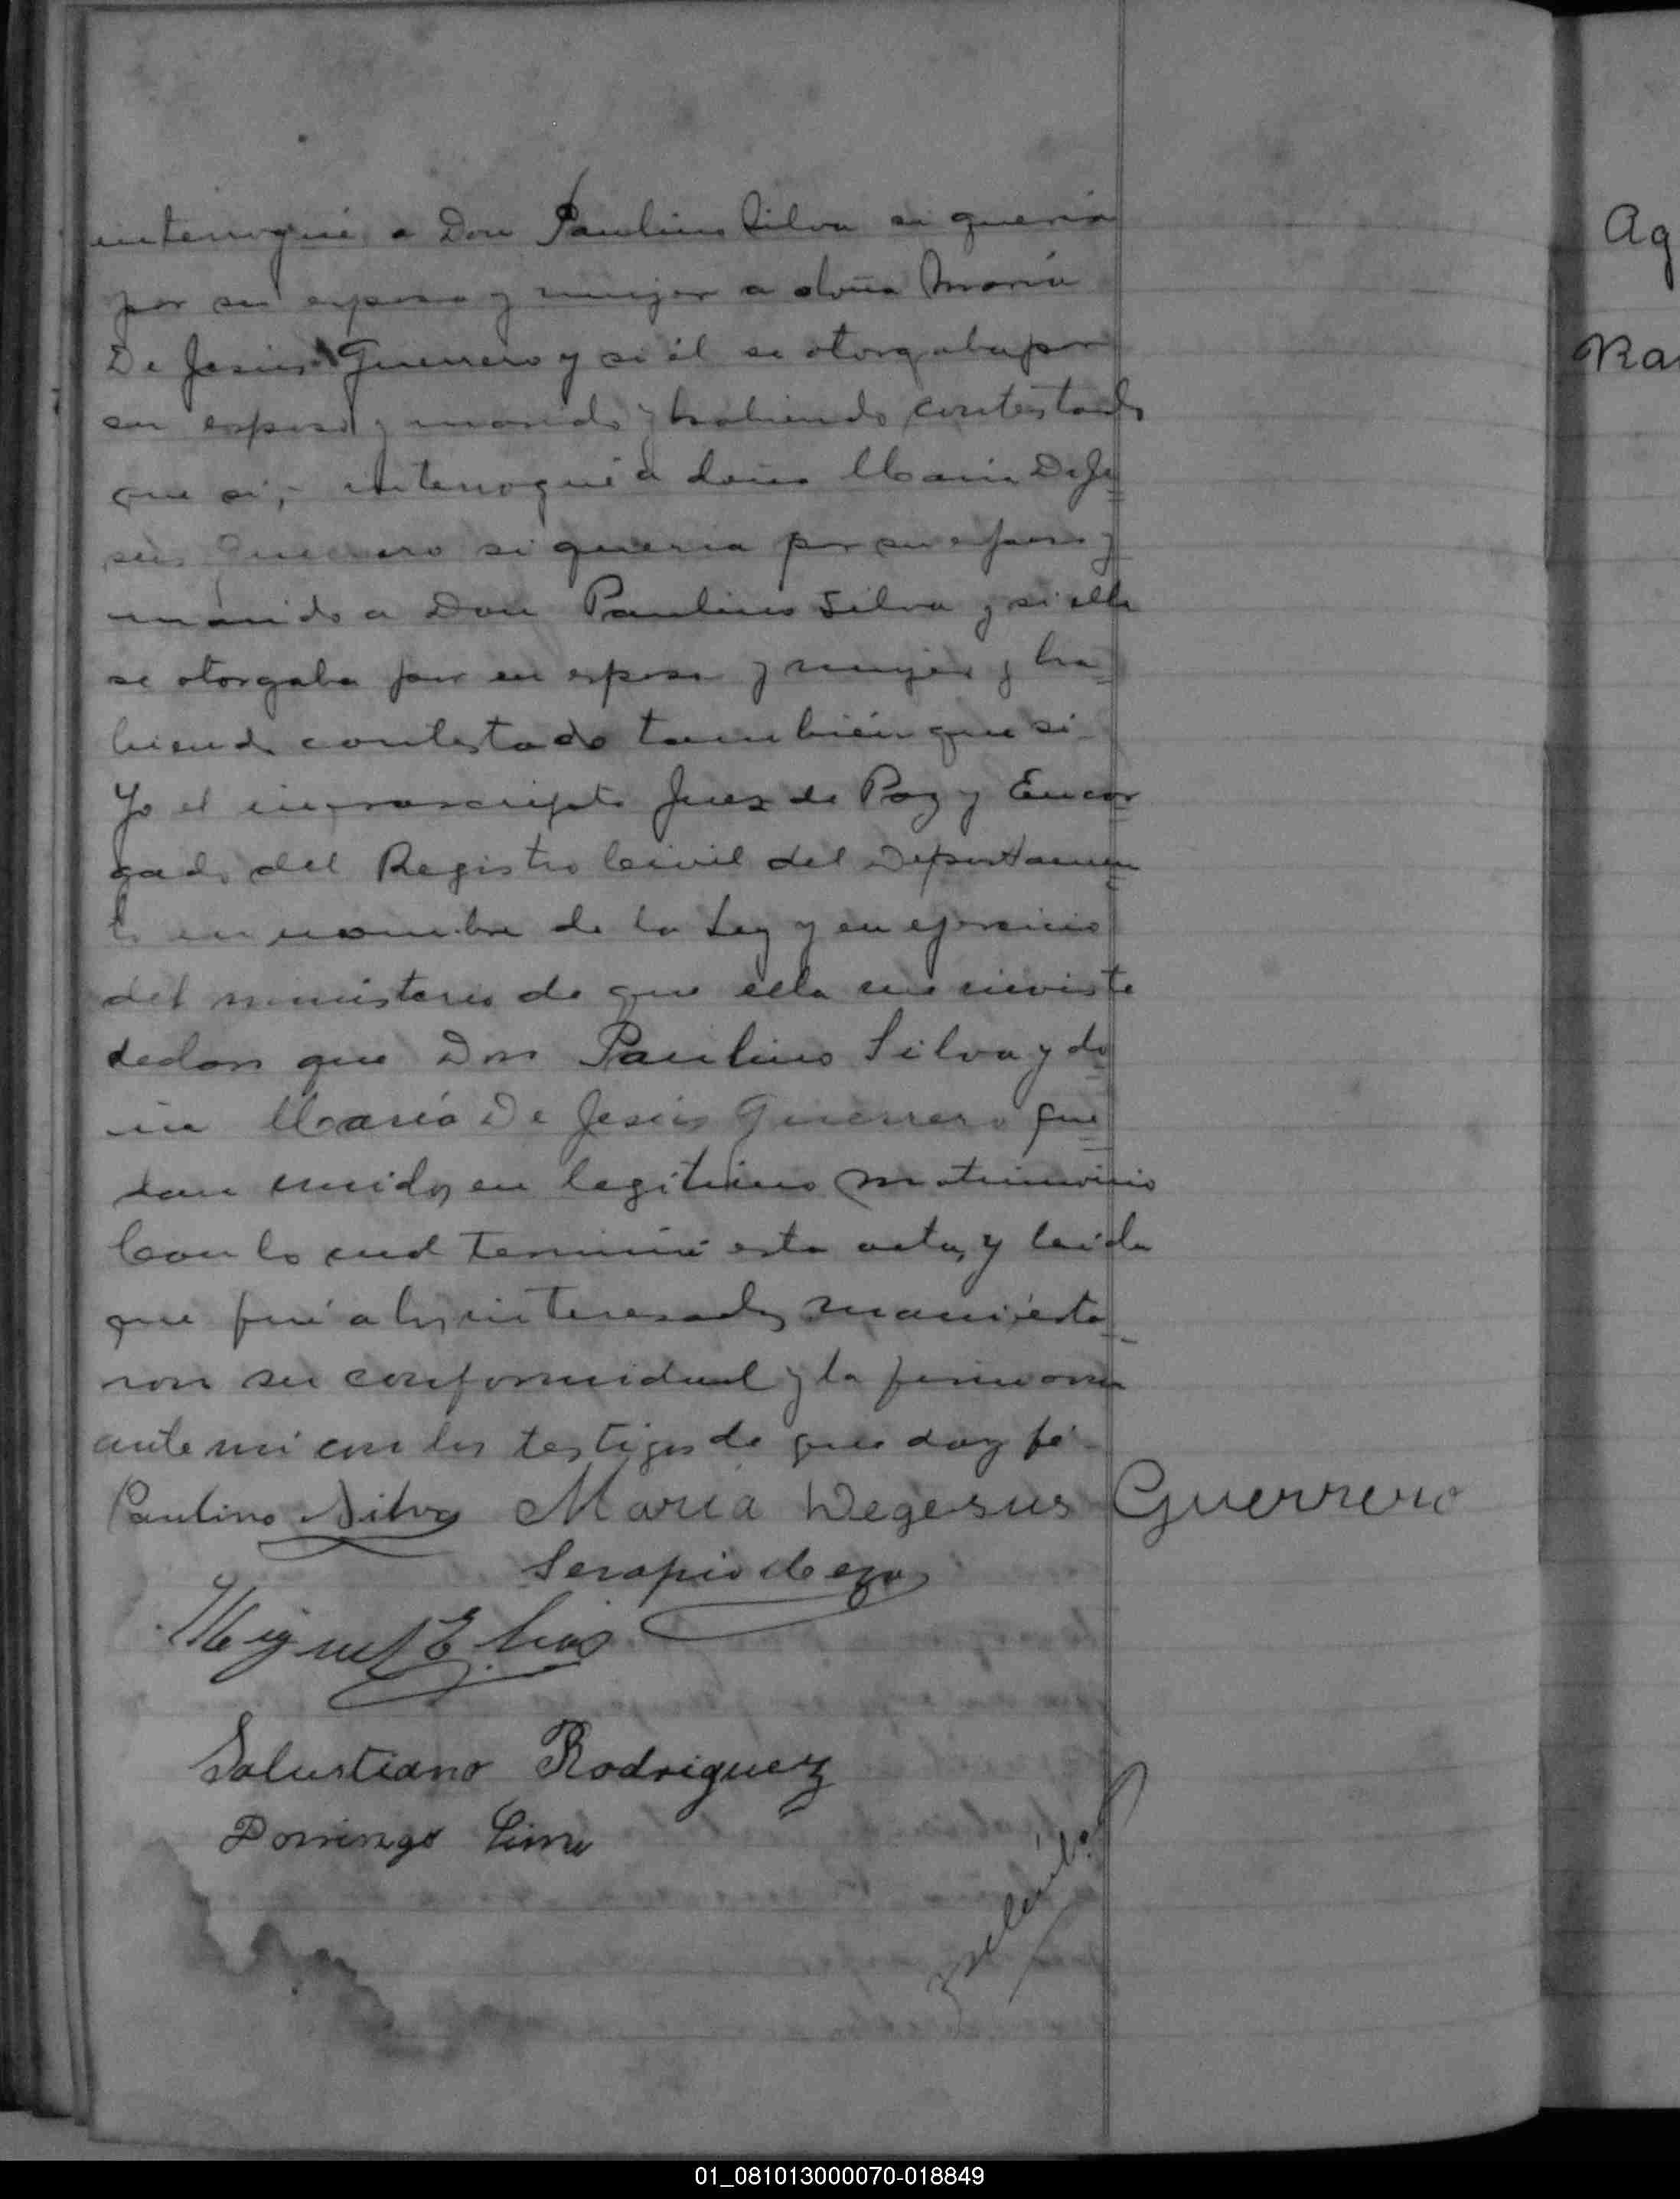 interrogué a Don Paulino Silva si queria
por su esposa y mujer a doña María
De Jesús Guerrero y si él se otorgaba por
su esposo y marido y habiendo contestado
que si, interrogué a doña Maria De Je
sús Guerrero si queria por su esposo y
marido a Don Paulino Silva y si ella
se otorgaba por su esposa y mujer y ha
biendo contestado también que si
Yo el infrascripto Juez de Paz y Encar
gado del Registro Civil del Departamen
to en nombre de la Ley y en ejercicio
del ministerio de que ella me inviste
declaro que Don Paulino Silva y do
ña María De Jesús Guerrero que
dan unidos en legítimo matrimonio
Con lo cual terminé esta acta, y leida
que fué a los interesados manifesta
ron su conformidad y la firmaron
ante mi con los testigos de que doy fé
Paulino Silva María Degesus Guerrero
Serapio Meza
Miguel E.
Salustiano Rodriguez
Domingo
Ag
Ra
01_081013000070-018849